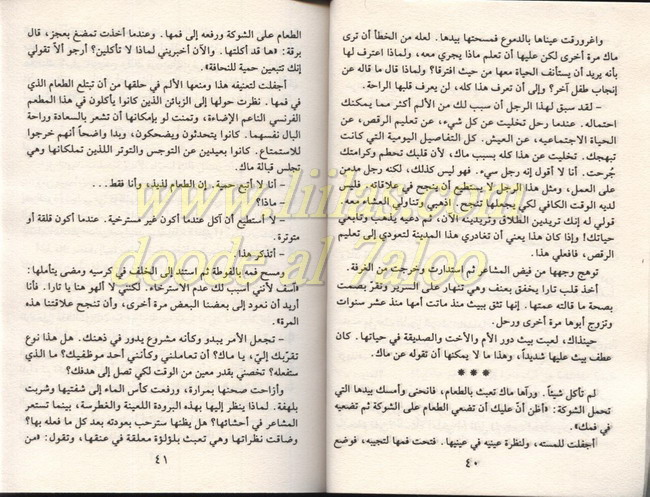 واغرورقت عيناها بالدموع فمسحتها بيدها. لعله من الخطأ أن ترى
ماك مرة أخرى لكن عليها أن تعلم ماذا يجري معه. ولماذا اعترف لها
بأنه يريد أن يستأنف الحياة معها من حيث افترقا؟ ولماذا قال ما قاله عن
إنجاب طفل آخر؟ وإلى أن تعرف هذا كله، لن يعرف قلبها الراحة.
– لقد سبق لهذا الرجل أن سبب لك من الألم أكثر مما يمكنك
احتماله. عندما رحل تخليت عن كل شيء، عن تعليم الرقص، عن
الحياة الاجتماعية، عن العيش. كل التفاصيل اليومية التي كانت
تبهجك. تخليت عن هذا كله بسبب ماك، لأن قلبك تحطم وكرامتك
جُرحت. أنا لا أقول إنه رجل سيء. فهو ليس كذلك، لكنه رجل مدمن
على العمل، ومثل هذا الرجل لا يستطيع أن ينجح في علاقاته. فليس
لديه الوقت الكافي لكي يجعلها تنجح. اذهبي وتناولي العشاء معه،
قولي له إنك تريدين الطلاق وتريدينه الآن، ثم دعيه يذهب وتابعي
حياتك! وإذا كان هذا يعني أن تغادري هذا المدينة لتعودي إلى تعليم
الرقص، فافعلي هذا.
توهج وجهها من فيض المشاعر ثم استدارت وخرجت من الغرفة.
أخذ قلب تارا يخفق بعنف وهي تنهار على السرير وتقر بصمت
بصحة ما قالته عمتها. إنها تثق ببيث منذ ماتت أمها منذ عشر سنوات
وتزوج أبوها مرة أخرى ورحل.
حينذاك، لعبت بيث دور الأم والأخت والصديقة في حياتها. كان
عطف بيث عليها شديداً، وهذا ما لا يمكنها أن تقوله عن ماك.
* * *
لم تأكل شيئاً. ورآها ماك تعبث بالطعام، فانحنى وأمسك بيدها التي
تحمل الشوكة: «أظن أنّ عليك أن تضعي الطعام على الشوكة ثم تضعيه
في فمك».
أجفلت للمسته، ولنظرة عينيه في عينيها. فتحت فمها لتجيبه، فوضع
٤٠
الطعام على الشوكة ورفعه إلى فمها. وعندما أخذت تمضغ بعجز، قال
برقة: «ها قد أكلتها. والآن أخبريني لماذا لا تأكلين؟ أرجو ألاّ تقولي
إنك تتبعين حمية للنحافة».
أجفلت لتعنيفه هذا ومنعها الألم في حلقها من أن تبتلع الطعام الذي
في فمها. نظرت حولها إلى الزبائن الذين كانوا يأكلون في هذا المطعم
الفرنسي الناعم الإضاءة، وتمنت لو بإمكانها أن تشعر بالسعادة وراحة
البال نفسيهما. كانوا يتحدثون ويضحكون، وبدا واضحاً أنهم خرجوا
للاستمتاع. كانوا بعيدين عن التوجس والتوتر اللذين تملكانها وهي
تجلس قبالة ماك.
– أنا لا أتبع حمية. إن الطعام لذيذ، وأنا فقط...
– ماذا؟
– لا أستطيع أن آكل عندما أكون غير مسترخية. عندما أكون قلقة أو
متوترة.
– أتذكر هذا.
ومسح فمه بالفوطة ثم استند إلى الخلف في كرسيه ومضى يتأملها:
«آسف لأنني أسبب لك عدم الاسترخاء، لكنني لا ألهو هنا يا تارا. فأنا
أريد أن نعود إلى بعضنا البعض مرة أخرى، وأن تنجح علاقتنا هذه
المرة».
– تجعل الأمر يبدو وكأنه مشروع يدور في ذهنك. هل هذا نوع
تقربك إليّ، يا ماك؟ أن تعاملني وكأنني أحد موظفيك؟ ما الذي
ستفعله؟ تخصني بقدر معين من الوقت لكي تصل إلى هدفك؟
وأزاحت صحنها بمرارة، ورفعت كأس الماء إلى شفتيها وشربت
بلهفة. لماذا ينظر إليها بهذه البرودة اللعينة والغطرسة، بينما تستعر
المشاعر في أحشائها؟ هل يظنها سترحب بعودته بعد كل ما فعله بها؟
وضاقت نظراتها وهي تعبث بلؤلؤة معلقة في عنقها، وتقول: «من
٤١
www.liilas.com
doode al 7aloo